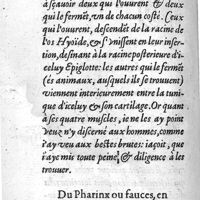 a sçauoir deux qui l'ouurent & deux
qui le fermēt, vn de chacun costé. Ceux
qui l'ouurent, descendēt de la racine de
l'os Hyoïde, & s'vnissent en leur inser-
tion, desinant à la racine posterieure d'i-
celuy Epiglotte: les autres qui le fermēt
(és animaux, ausquels ils se trouuent)
viennent interieurement entre la tuni-
que d'iceluy & son cartilage. Or quant
à ses quatre muscles, ie ne les ay point
veuz n'y discerné aux hommes, comme
i'ay veu aux bestes brutes: iaçoit, que
i'aye mis toute peine, & diligence à les
trouuer.
Du Pharinx ou fauces, en